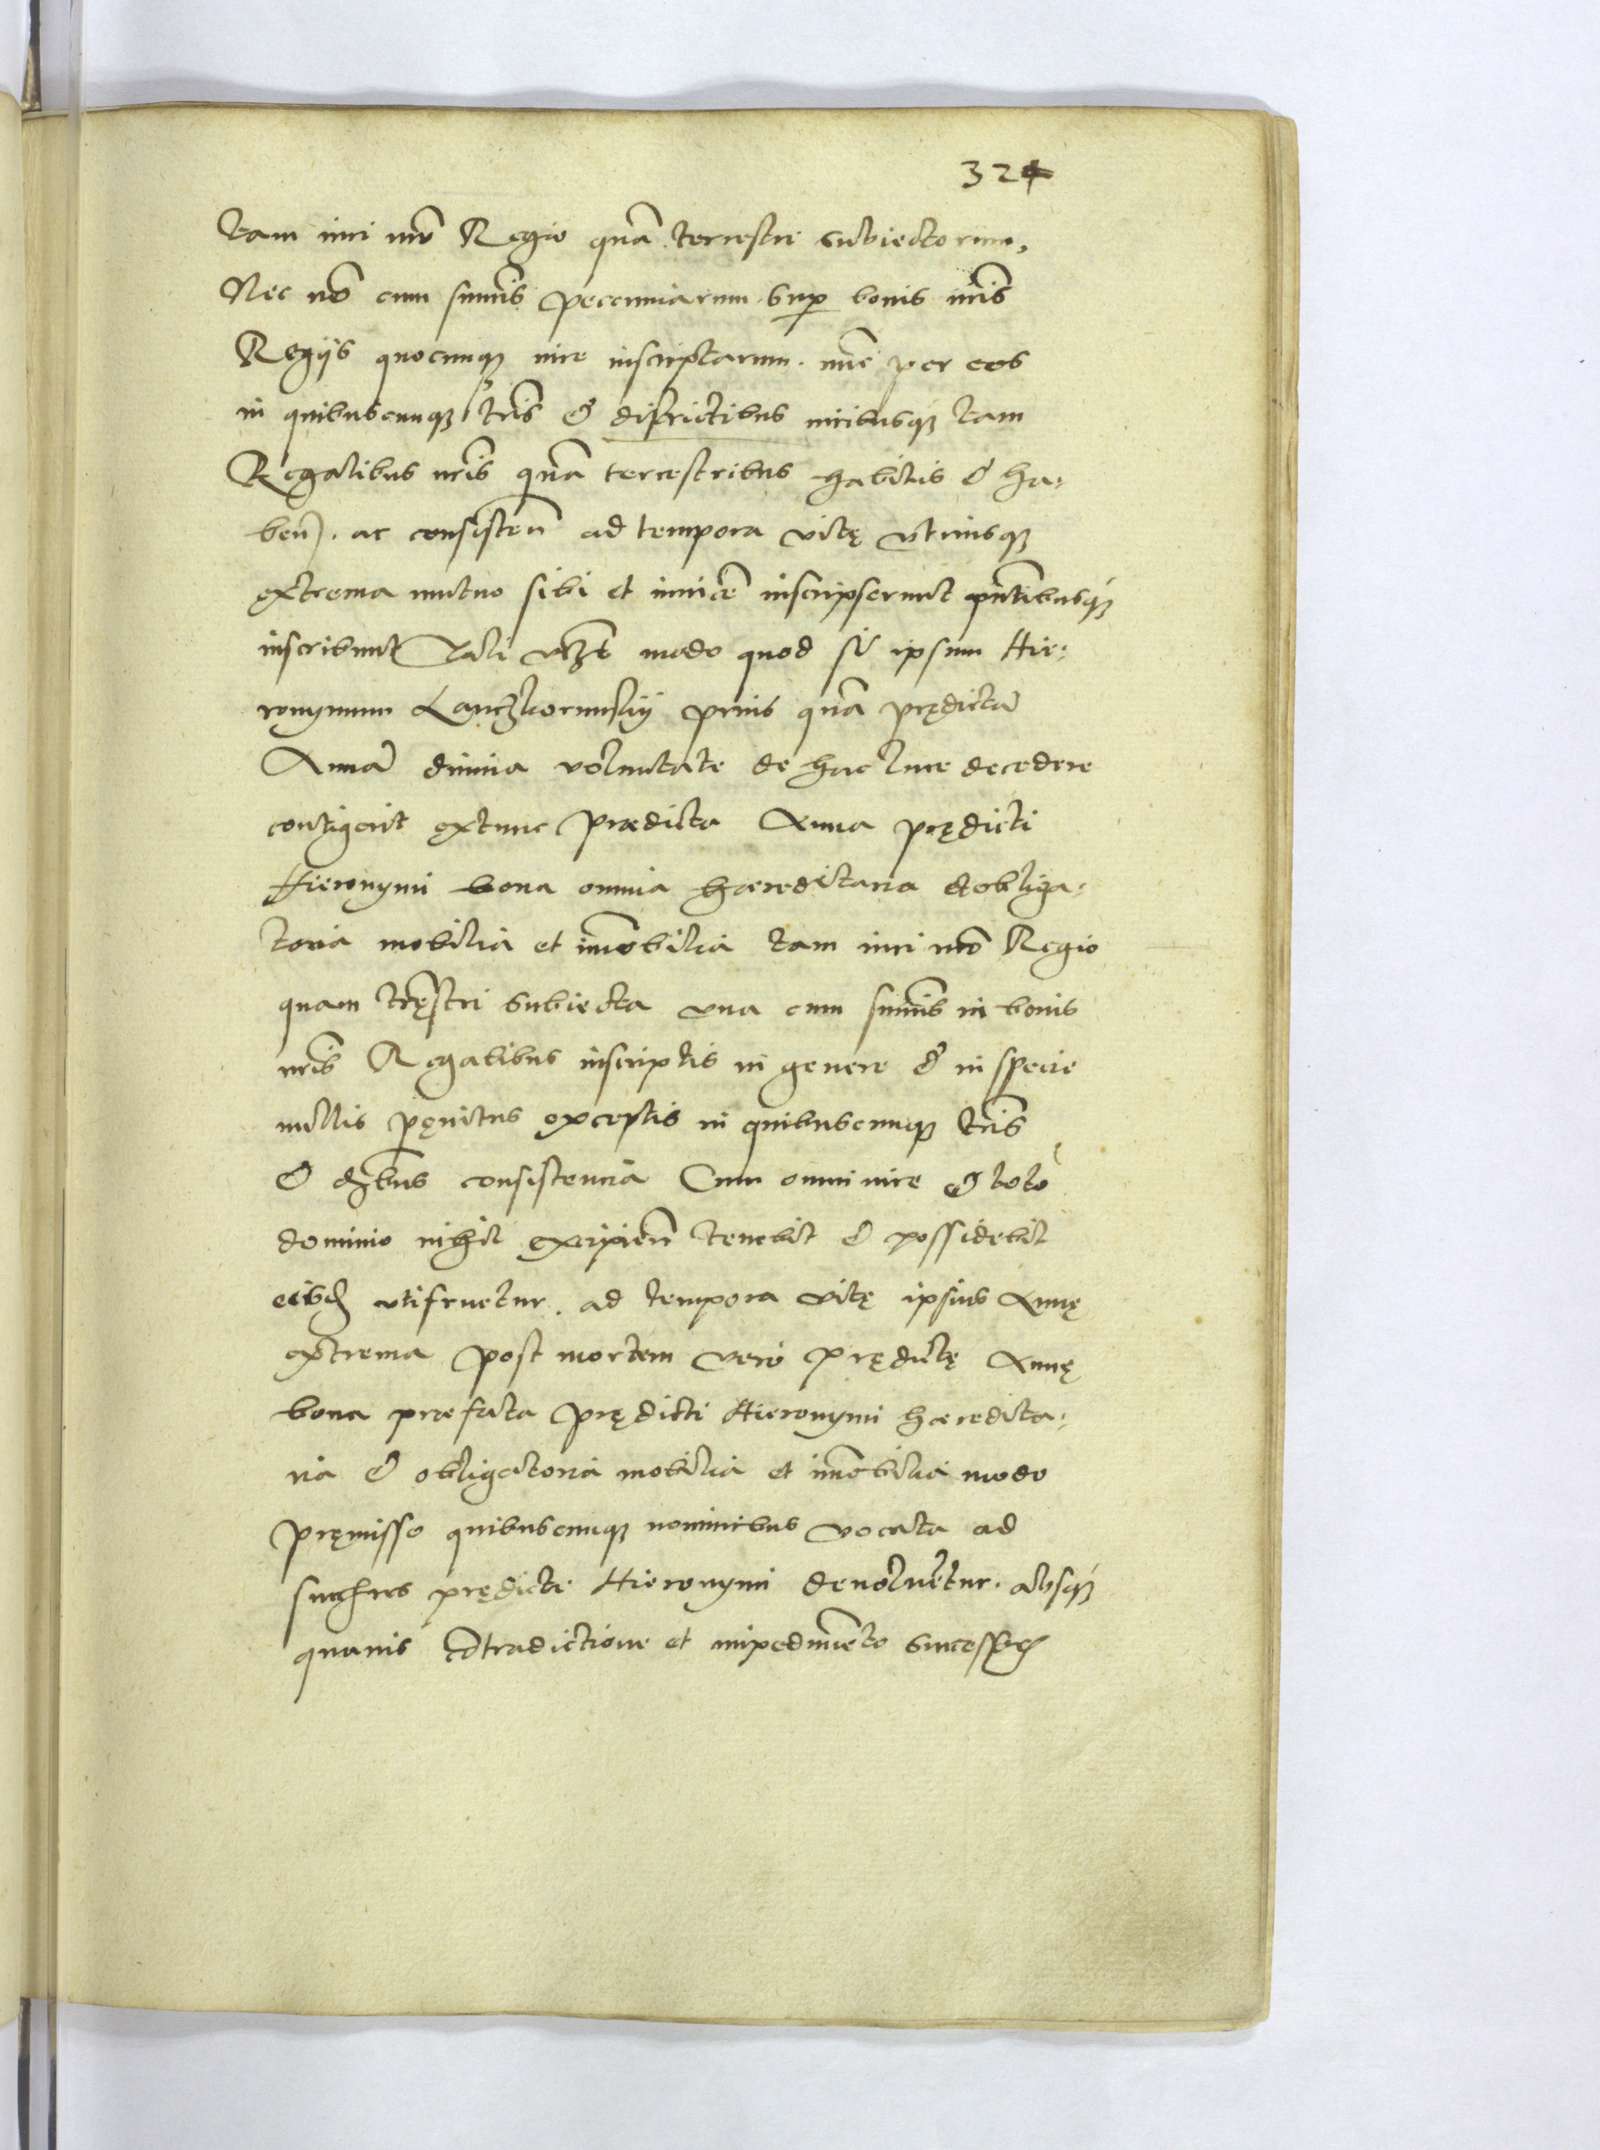 324
tam iuri nro Regio quā terrestri subiectorum,
Nec nō cum sumis pecuniarum sup bonis nris
Regijs quocunqꝫ iure inscriptarum. nūc per eos
in quibuscunqꝫ tris & districtibus iuribusqꝫ tam
Regalibus nris quā terrestribus habitis & ha-
ben. ac consisten ad tempora vitę vtriusqꝫ
extrema mutuo sibi et inuicē inscripserunt pntibusqꝫ
inscribunt Tali vꝫt modo quod si ipsum Hie-
ronymum Lanczkorunskij prius quā prędictā
Annā diuina voluntate de hac luce decedere
contigerit extunc prædicta Anna prędicti
Hieronymi bona omnia hæreditaria et obliga-
toria mobilia et imobilia tam iuri nro Regio
quam tręstri subiecta vna cum sumis in bonis
nris Regalibus inscriptis in genere & in specie
nullis pęnitus exceptis in quibuscunqꝫ tris
& dibus consistencia Cum omni iure & toto
dominio nihil excipien tenebit & possidebit
eisd utifruetur. ad tempora vitę ipsius Annę
extrema post mortem vero prędictę Annę
bona præfata prędicti Hieronymi hæredita-
ria & obligatoria mobilia et imobilia modo
pręmisso quibuscunqꝫ nominibus vocata ad
succres prędicti Hieronymi deuoluētur. absqꝫ
quauis cōtradictione et impedimēto